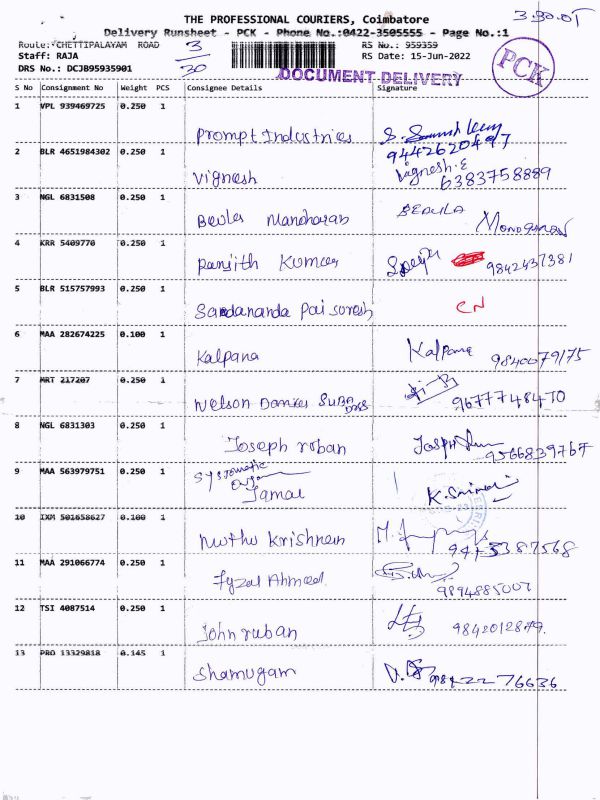 THE PROFESSIONAL COURIERS, Coimbatore
3.30.01
Delivery Runsheet - PCK - Phone No.:0422-3505555 - Page No.:1
Route: CHETTIPALAYAM ROAD
3
30
RS No.: 959359
Staff: RAJA
RS Date: 15-Jun-2022
PCK
DRS No.: DCJB95935901
DOCUMENT DELIVERY
S No Consignment No Weight PCS Consignee Details Signature
1 VPL 939469725 0.250 1
Prompt Industries
9442620497
2 BLR 4651984302 0.250 1
Vignesh
Vignesh.E
6383758889
3 NGL 6831508 0.250 1
Beula Manoharan
BEAULA
4 KRR 5409770 0.250 1
Ranjith Kumar
9842437381
5 BLR 515757993 0.250 1
Sadananda Pai Suresh
CN
6 MAA 282674225 0.100 1
Kalpana
Kalpana
9840079175
7 MRT 217207 0.250 1
Nelson
9677748470
8 NGL 6831303 0.250 1
Joseph roban
9566839767
9 MAA 563979751 0.250 1
Systematic
Jamal
10 IXM 501658627 0.100 1
Muthu Krishnan
11 MAA 291066774 0.250 1
Fyzal Ahmed
9894885007
12 TSI 4087514 0.250 1
John ruban
13 PRO 13329818 0.145 1
Shamugam
9842276636